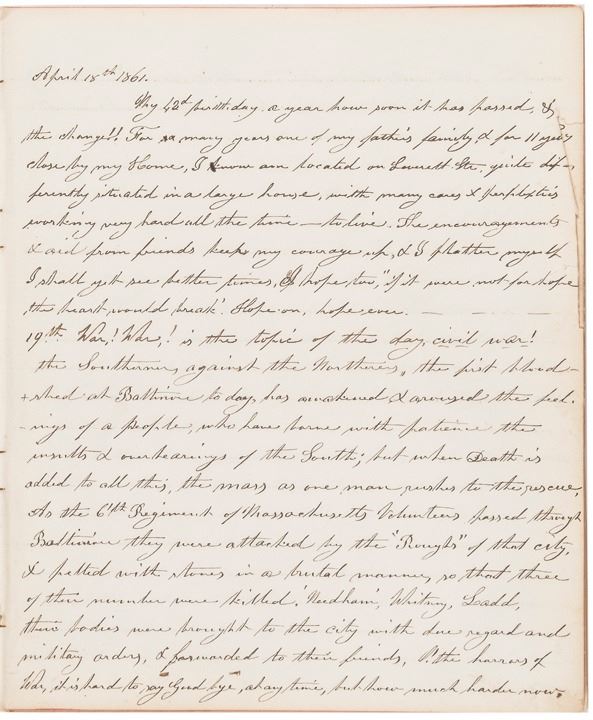 April 18th 1861.
My 42d birthday. a year how soon it has passed, &
the change!! For so many years one of my father's family & for 11 years
close by my Home, I know am located on Leverett Str, quite dif-
ferently situated in a large house, with many cares & perplexties
working very hard all the time — to live. The encouragements
& aid from friends keep my courage up, & I flatter myself
I shall yet see better times, I hope too, "if it were not for hope
the heart would break". Hope on, hope ever. — — —
19th War! War! is the topic of the day, civil war!
the Southerners, against the Northerners, the first blood-
-shed at Baltimore to day, has awakened & aroused the feel-
-ings of a people, who have borne with patience the
insults & overbearings of the South; but when Death is
added to all this, the mass as one man rushes to the rescue,
As the 6th Regiment of Massachusetts Volunteers passed through
Baltimore they were attacked by the "Roughs" of that city,
& pelted with stones in a brutal manner, so that three
of their number were killed. Needham, Whitney, Ladd,
their bodies were brought to the city with due regard and
military orders, & forwarded to their friends, O! the horrors of
War, it is hard to say Good bye, at any time, but how much harder now.